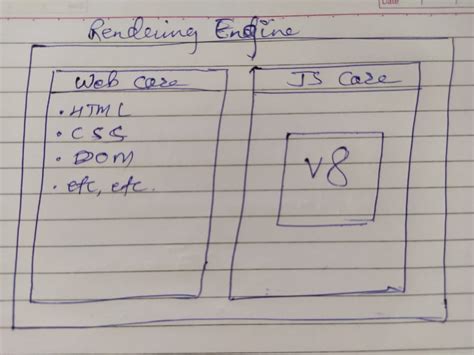 Date
Rendering Engine
Web Core
• HTML
• CSS
• DOM
• etc, etc.
JS Core
V8